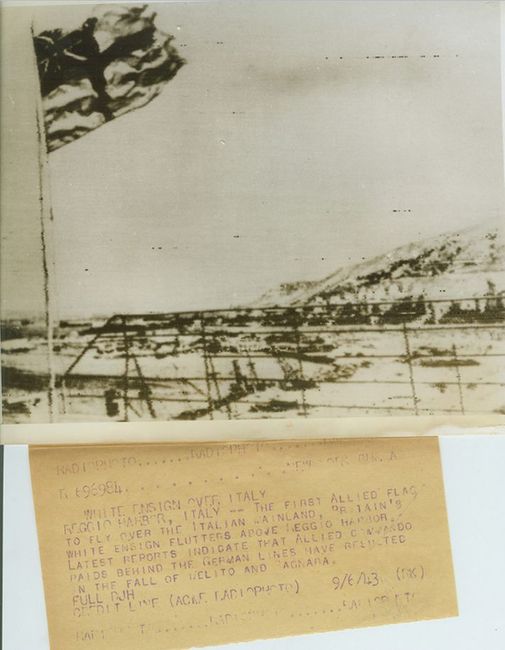 RADIOPHOTO.......RADIOPHOTO
R 696984
WHITE ENSIGN OVER ITALY
REGGIO HARBOR, ITALY -- THE FIRST ALLIED FLAG
TO FLY OVER THE ITALIAN MAINLAND, BRITAIN'S
WHITE ENSIGN FLUTTERS ABOVE REGGIO HARBOR.
LATEST REPORTS INDICATE THAT ALLIED COMMANDO
RAIDS BEHIND THE GERMAN LINES HAVE RESULTED
IN THE FALL OF MELITO AND BAGNARA.
FULL DJH
CREDIT LINE (ACME RADIOPHOTO) 9/6/43